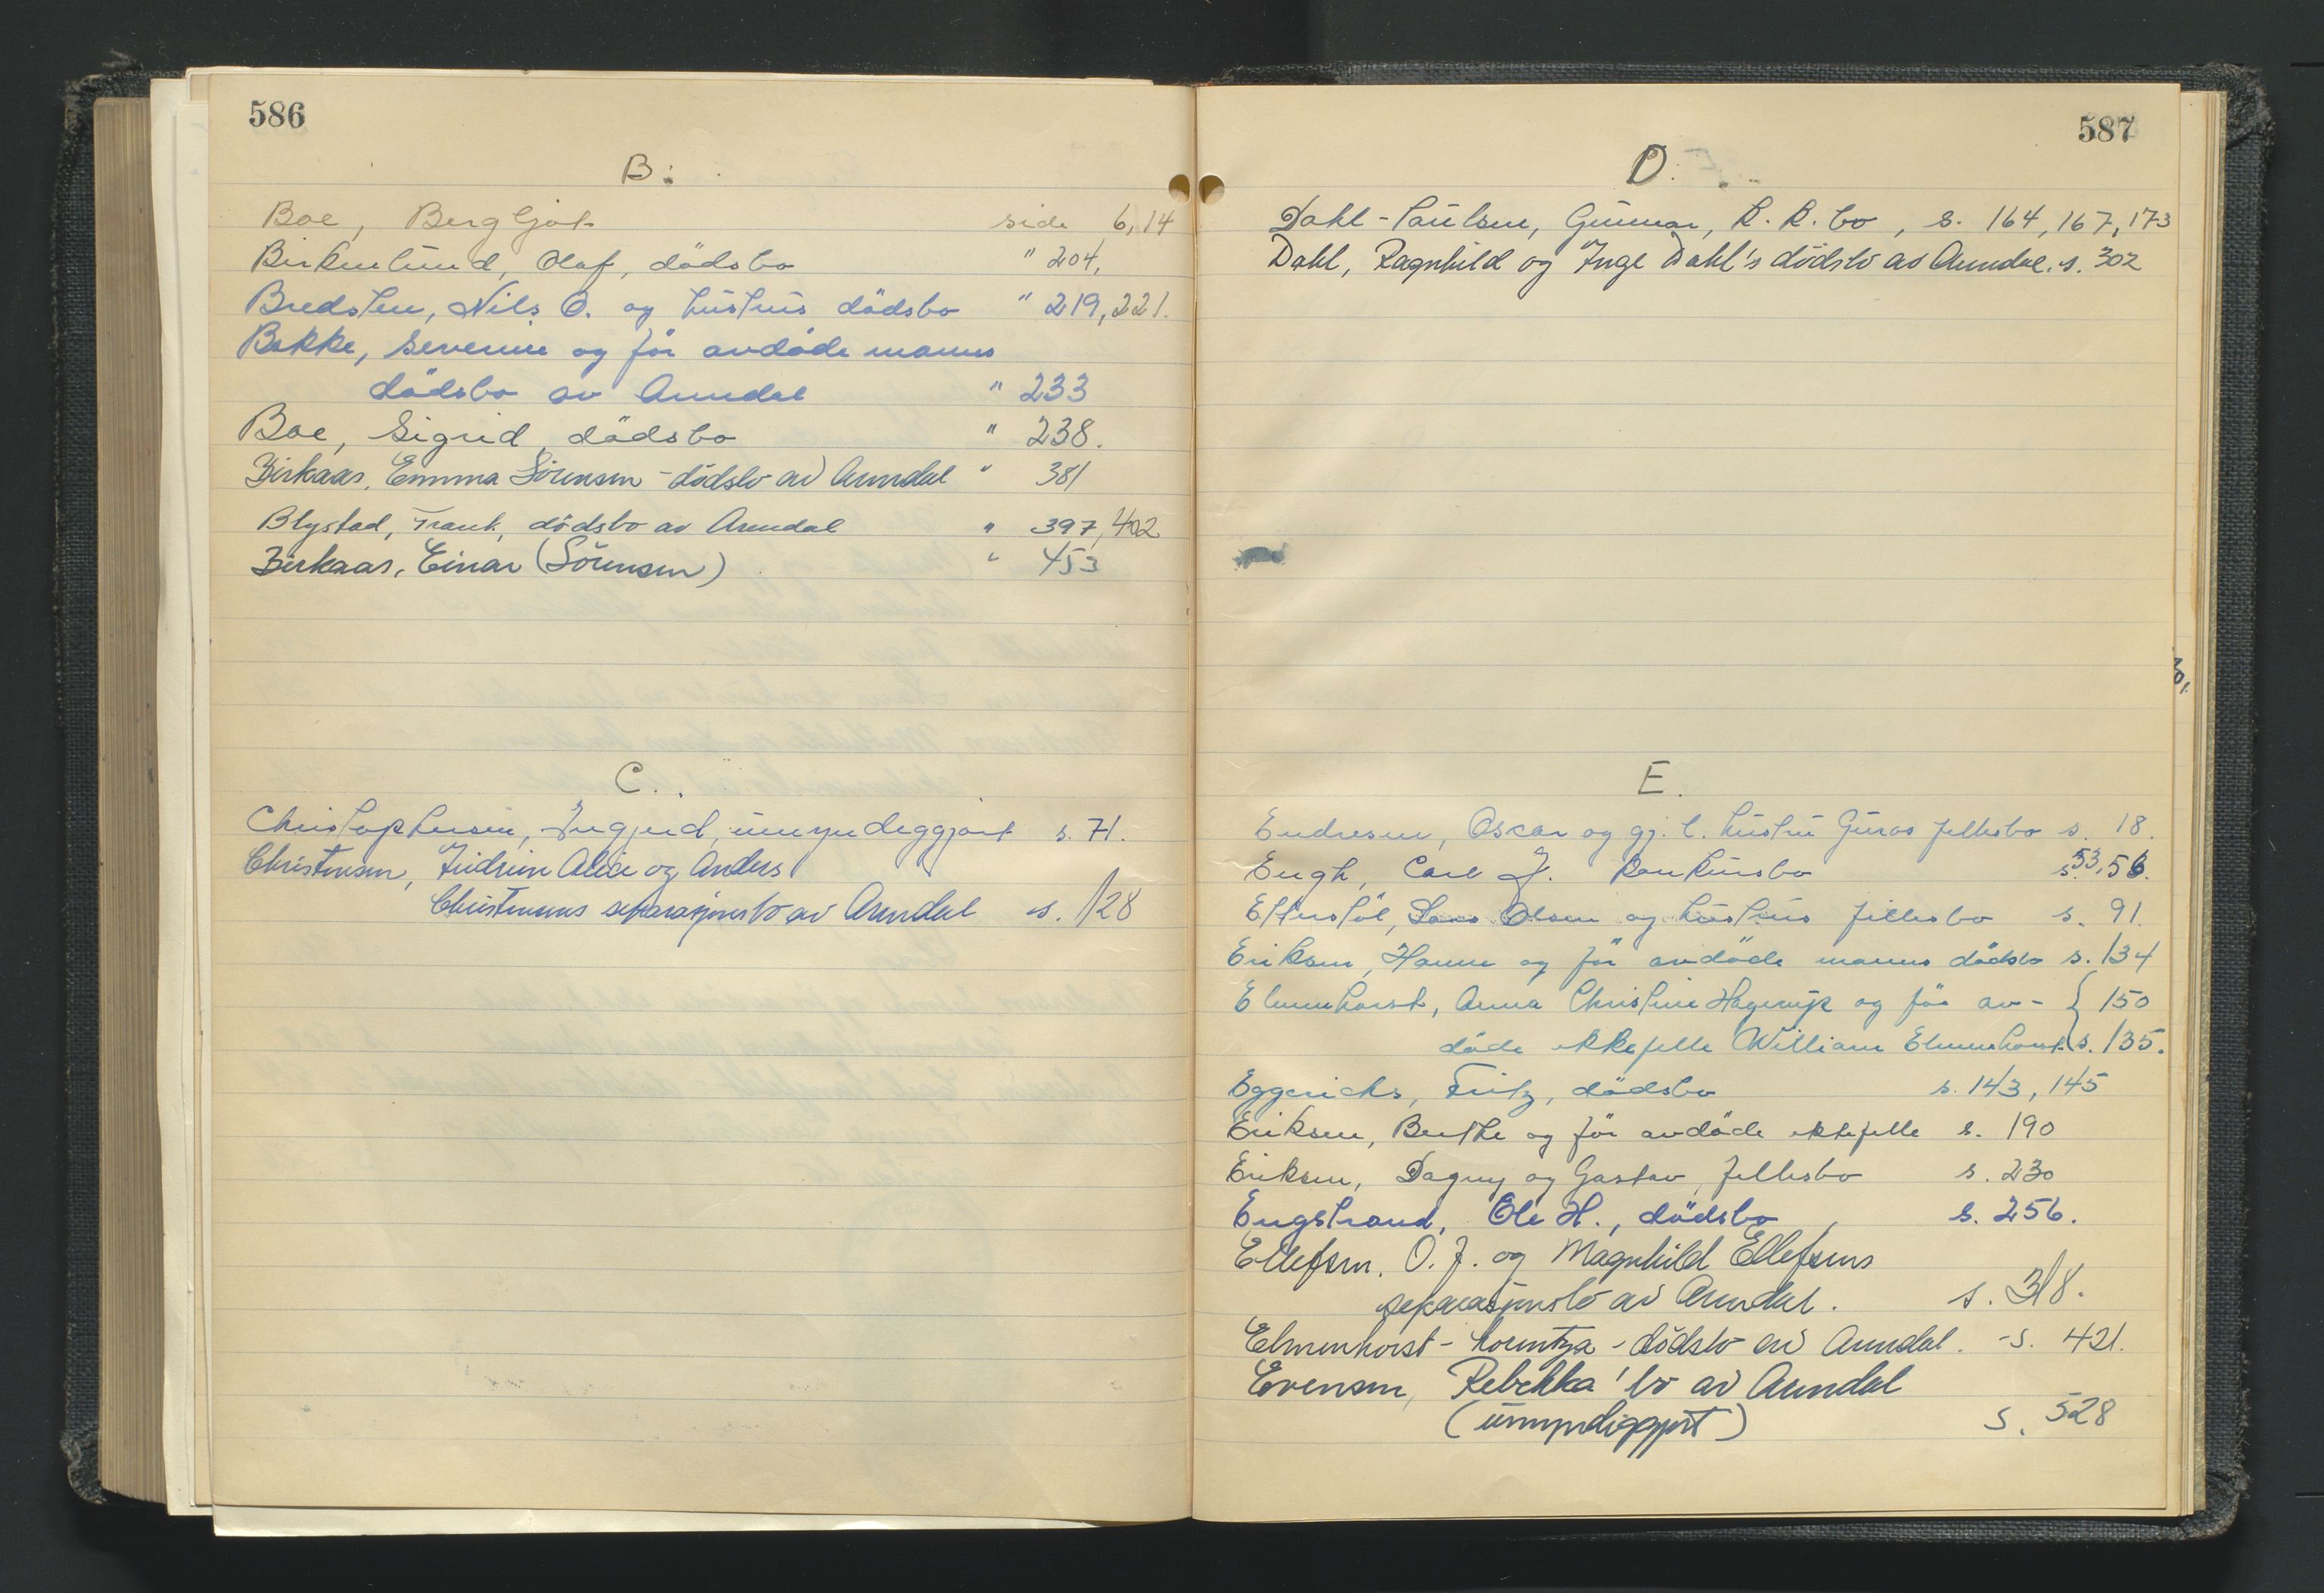 586
B.
Boe, Bergljot side 6, 14
Birkenlund, Olaf, dödsbo " 204,
Bredsten, Nils O. og hustrus dödsbo " 219, 221.
Bakke, Severine og før avdöde manns
dödsbo av Arendal " 233
Boe, Sigrid, dödsbo " 238.
Birkaas, Emma Sörensen - dödsbo av Arendal " 381
Blystad, Frank, dödsbo av Arendal " 397, 402
Birkaas, Einar (Sörensen) " 453
C.
Christophersen, Ingjerd, umyndiggjort s. 71.
Christensen, Alice og Anders
Christensens separasjonsbo av Arendal s. 128
587
D.
Dahl-Paulsen, Gunnar, K. K. bo, s. 164, 167, 173
Dahl, Ragnhild og Inge Dahl's dödsbo av Arendal. s. 302
E.
Endresen, Oscar og gj. l. hustru Guros fellesbo s. 18.
Engh, Carl J. konkursbo s. 53, 56.
Lars Olsen og hustrus fellesbo s. 91.
Eriksen, Hanne og før avdöde manns dödsbo s. 134
Elmenhorst, Anna Christine Hagerup og før av- { 150
döde ektefelle William Elmenhorst s. 135.
Eggerichs, Fritz, dödsbo s. 143, 145
Eriksen, Berthe og før avdöde ektefelle s. 190
Eriksen, Dagny og Gustav, fellesbo s. 230
Engstrand, Ole H., dödsbo s. 256.
Ellefsen, O. J. og Magnhild Ellefsens
separasjonsbo av Arendal. s. 318.
Elmenhorst - Lorentza - dödsbo av Arendal. - s. 421.
Evensen, Rebekka' bo av Arendal
(umyndiggjort) s. 528